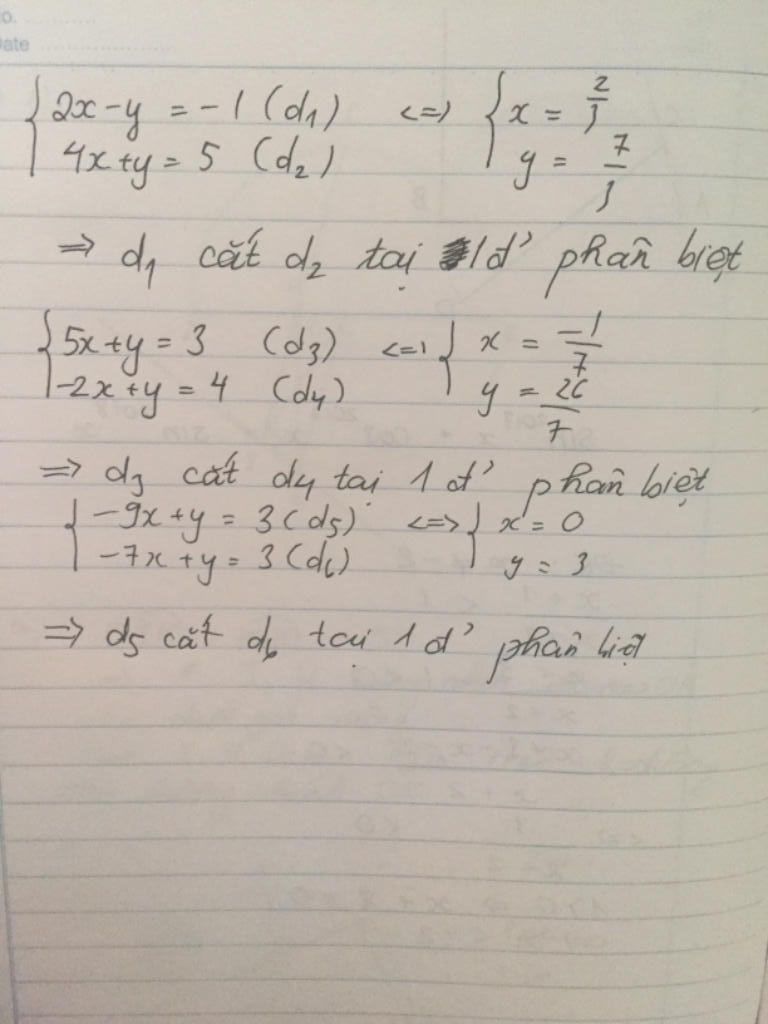 No.
Date
{ 2x - y = -1 (d1) <=> { x = 2/3
4x + y = 5 (d2) y = 7/3
=> d1 cắt d2 tại 1 đ' phân biệt
{ 5x + y = 3 (d3) <=> { x = -1/7
-2x + y = 4 (d4) y = 26/7
=> d3 cắt d4 tại 1 đ' phân biệt
{ -9x + y = 3 (d5) <=> { x = 0
-7x + y = 3 (d6) y = 3
=> d5 cắt d6 tại 1 đ' phân biệt